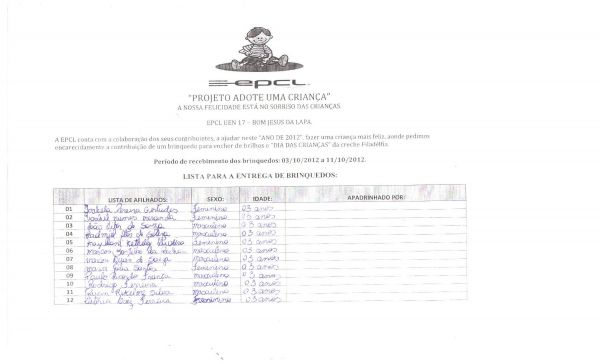 epcl
"PROJETO ADOTE UMA CRIANÇA"
A NOSSA FELICIDADE ESTÁ NO SORRISO DAS CRIANÇAS
EPCL UEN 17 – BOM JESUS DA LAPA.
A EPCL conta com a colaboração dos seus contribuintes, a ajudar neste "ANO DE 2012", fazer uma criança mais feliz, aonde pedimos
encarecidamente a contribuição de um brinquedo para encher de brilhos o "DIA DAS CRIANÇAS" da creche Filadélfia.
Período de recebimento dos brinquedos: 03/10/2012 a 11/10/2012.
LISTA PARA A ENTREGA DE BRINQUEDOS:
LISTA DE AFILHADOS: SEXO: IDADE: APADRINHADO POR:
01 Feminino 03 anos
02 Feminino 03 anos
03 João de Souza masculino 03 anos
04 de Souza masculino 03 anos
05 Feminino 03 anos
06 masculino 03 anos
07 de Souza masculino 03 anos
08 Santos Feminino 03 anos
09 masculino 03 anos
10 Rodrigo Ferreira masculino 03 anos
11 Silva masculino 03 anos
12 Ferreira Feminino 03 anos